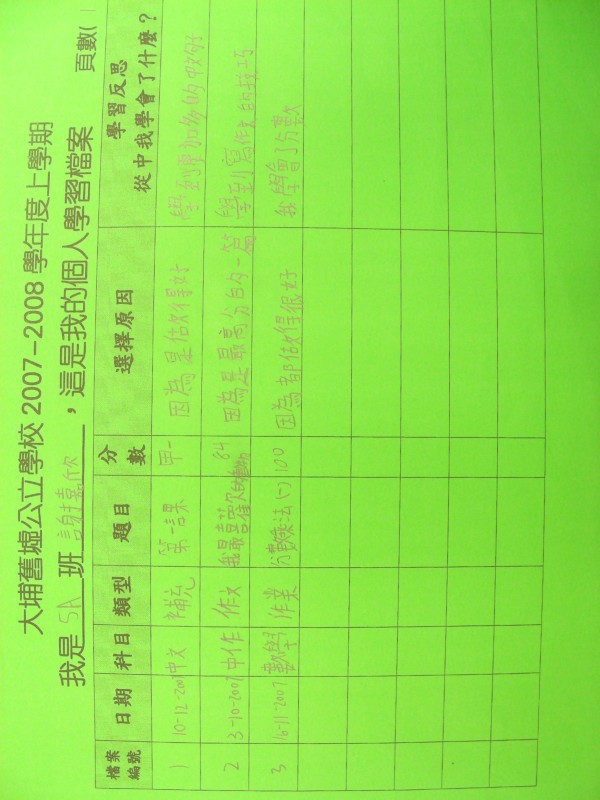 大埔舊墟公立學校 2007-2008 學年度上學期
我是 5A 班 謝嘉欣 ,這是我的個人學習檔案 頁數( 1
檔案編號 日期 科目 類型 題目 分數 選擇原因 學習反思 從中我學會了什麼?
1 10-12-2007 中文 補充 第一課 甲- 因為是做得好 學到更加多的
2 3-10-2007 中作 作文 我最喜歡的 84 因為是最高分的一篇 學到寫作文的技巧
3 16-11-2007 數學 作業 分數乘法(一) 100 因為都做得很好 我學會了分數